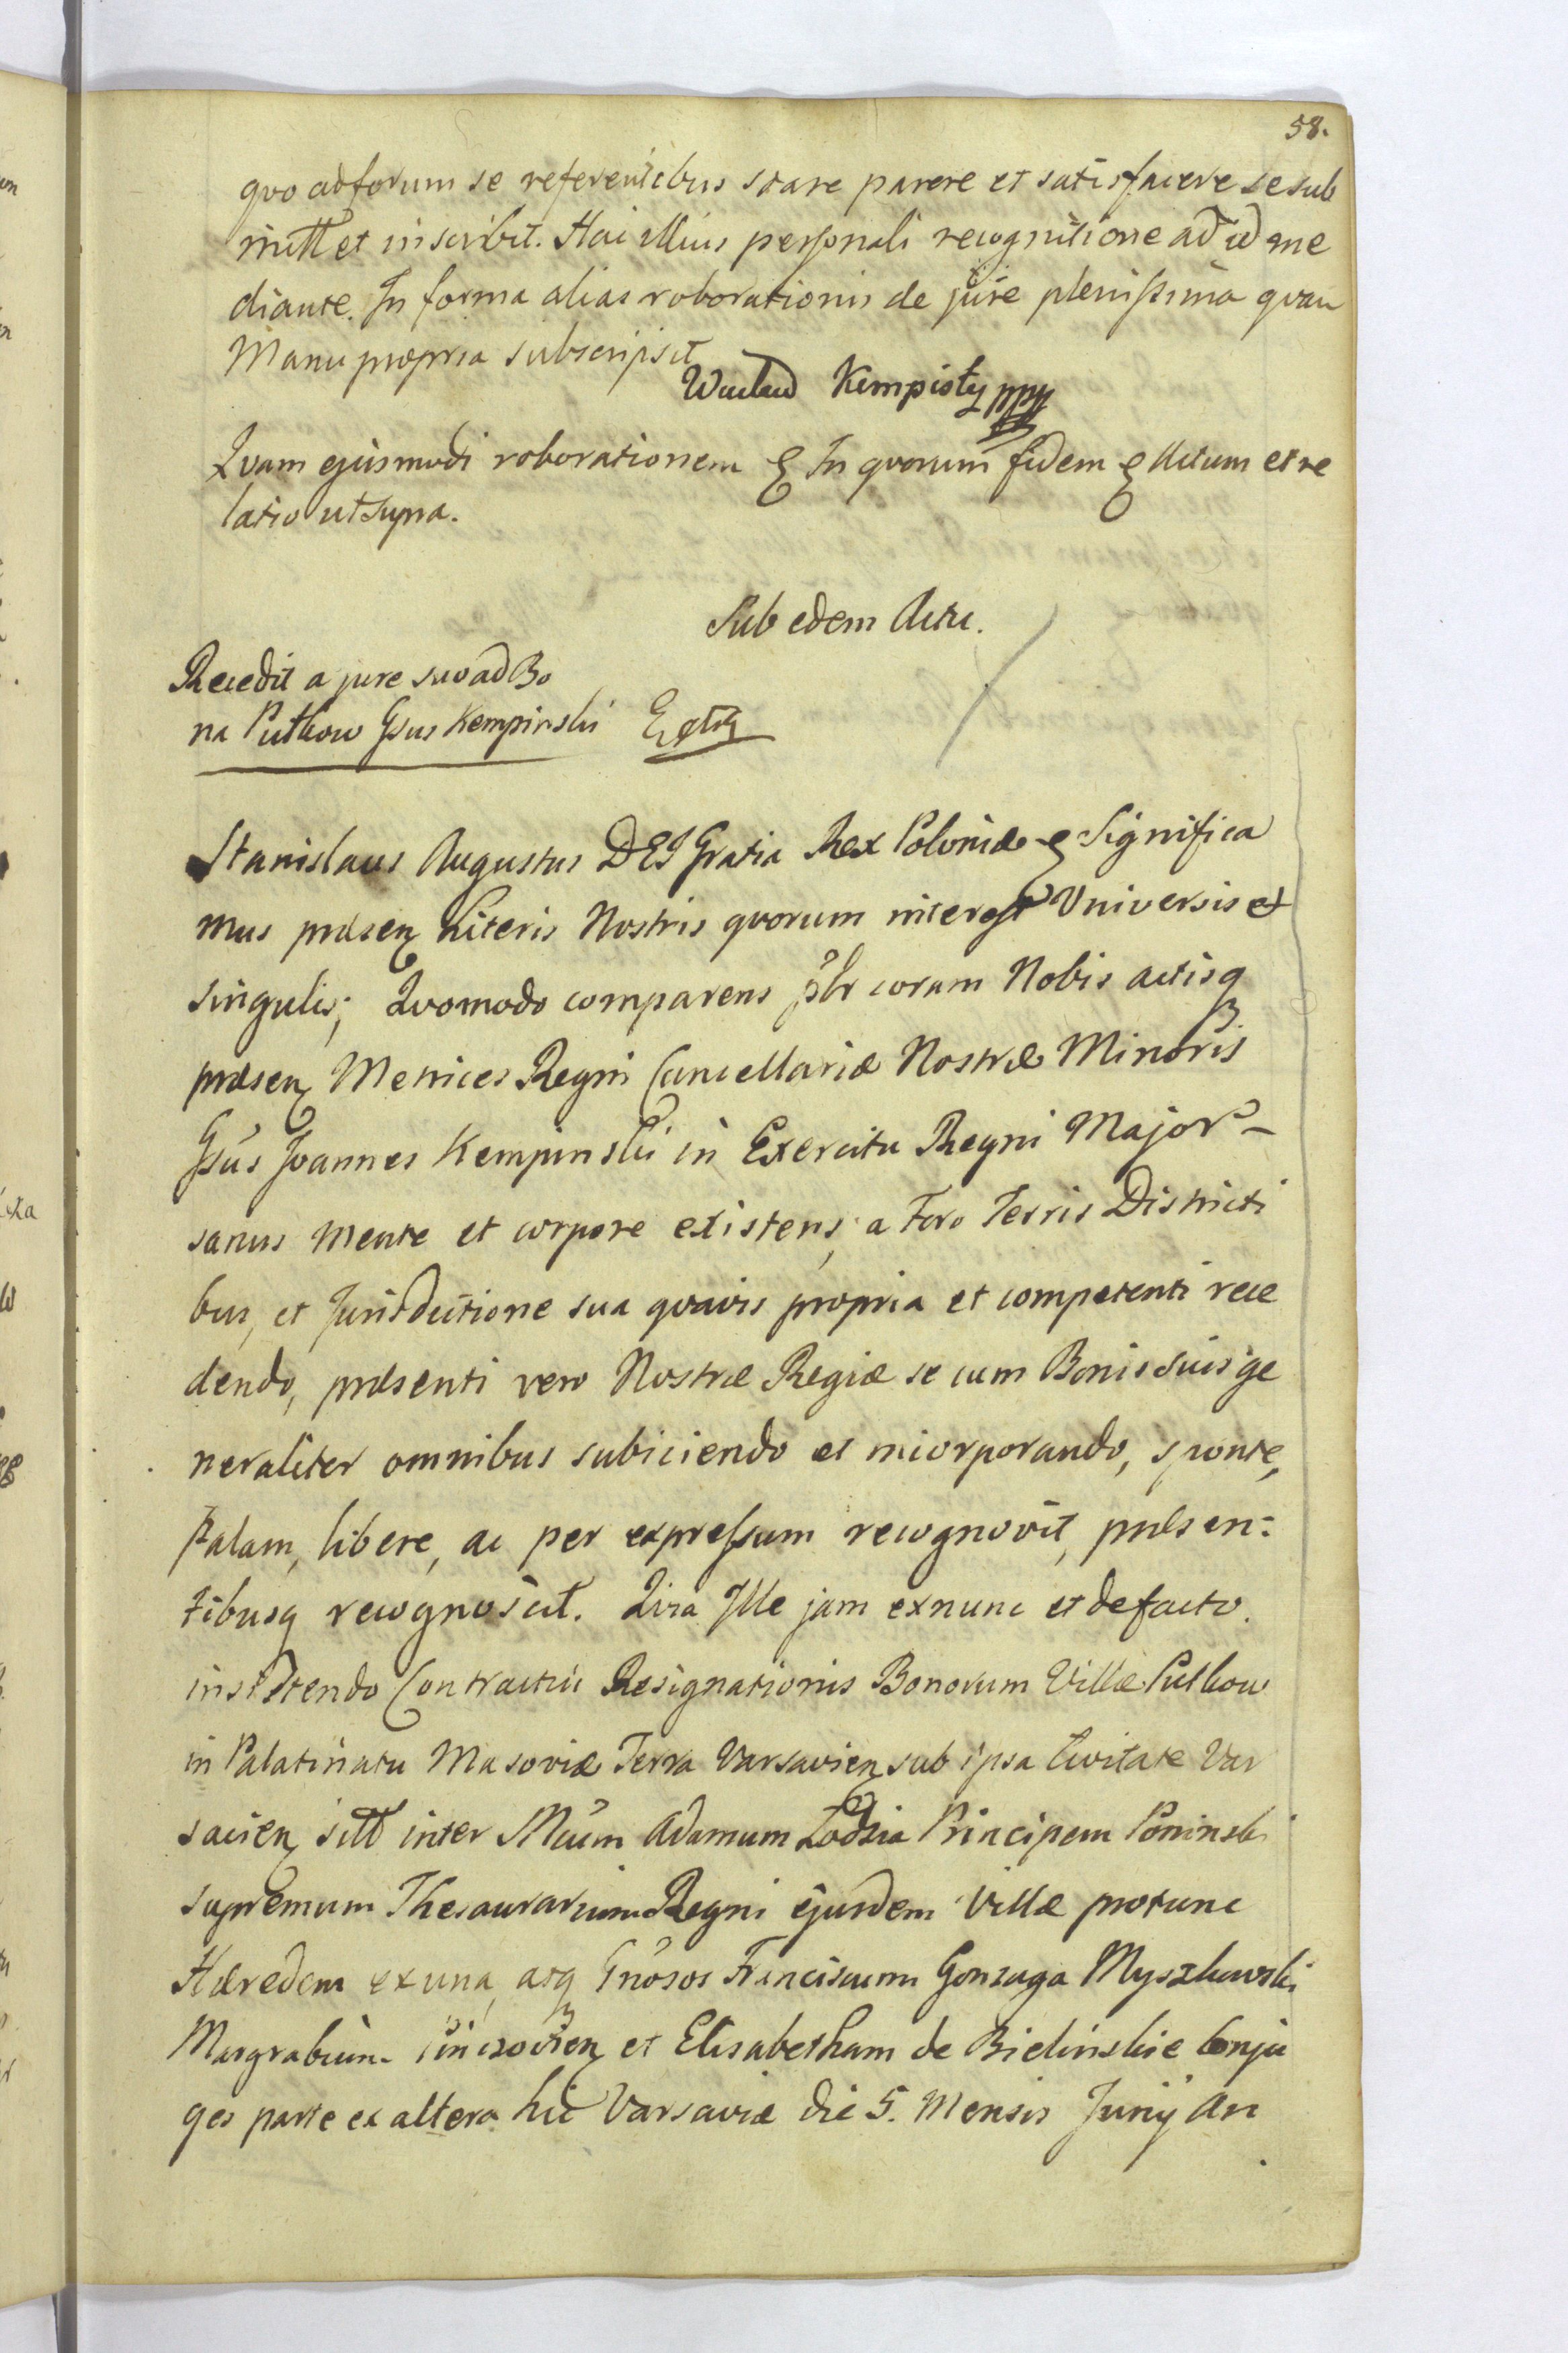 58.
quo ad forum se referentibus stare parere et satisfacere se sub
mittt et inscribit. Hac illius personali recognitione ad id me
diante. In forma alias roborationis de jure plenissima quam
Manu propria subscripsit
Waclaw Kempisty mpp
Qvam ejusmodi roborationem & In quorum fidem & Actum et re
latio ut supra.
Sub edem Actu.
Recedit a jure suo ad Bo
na Putkow Gsus Kempinski
Stanislaus Augustus DEI Gratia Rex Poloniæ & Significa
mus præsen Literis Nostris quorum interest Universis et
singulis; Qvomodo comparens plr coram Nobis actisq
præsen Metrices Regni Cancellariæ Nostræ Minoris
Gsus Joannes Kempinski in Exercitu Regni Major
sanus mente et corpore existens, a Foro Terris Districti
bus, et Jurisdictione sua quavis propria et competenti rece
dendo, præsenti vero Nostræ Regiæ se cum Bonis suis ge
neraliter omnibus subiciendo et incorporando, sponte,
palam, libere, ac per expressum recognovit, præsen:
tibusq recognoscit. Qvia Ille jam ex nunc et de facto.
insistendo Contractui Resignationis Bonorum Villæ Putkow
in Palatinatu Masoviæ Terra Varsavien sub ipsa Civitate Var
savien sitt inter Mcum Adamum Lodzia Principem Poninski
supremum Thesaurarium Regni ejusdem Villæ protunc
Hæredem ex una, atq Gnosos Franciscum Gonzaga Myszkowski
Margrabium Pinczovien et Elisabetham de Bielinskie Conju
ges parte ex altera hic Varsaviæ die 5. Mensis Junij An